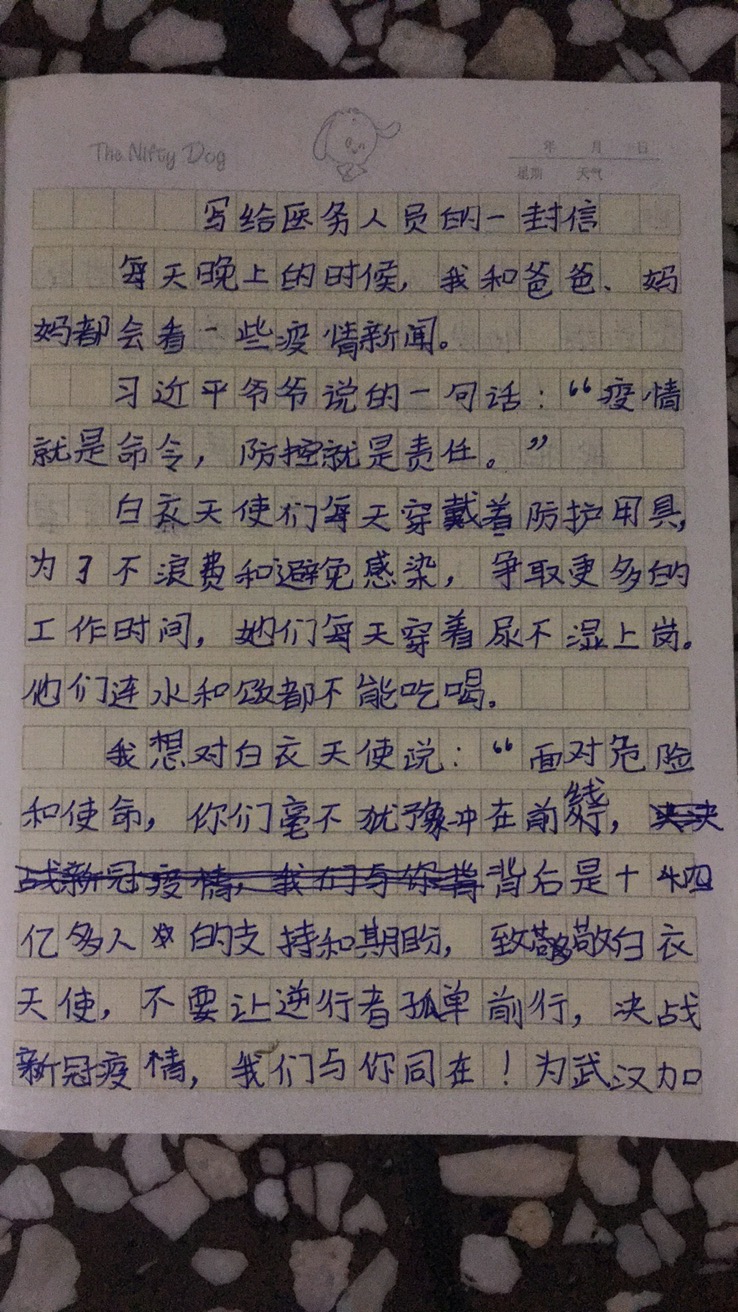 The Nifty Dog
年 月 日
星期 天气
写给医务人员的一封信
每天晚上的时候,我和爸爸、妈
妈都会看一些疫情新闻。
习近平爷爷说的一句话:“疫情
就是命令,防控就是责任。”
白衣天使们每天穿戴着防护用具,
为了不浪费和避免感染,争取更多的
工作时间,她们每天穿着尿不湿上岗。
他们连水和饭都不能吃喝。
我想对白衣天使说:“面对危险
和使命,你们毫不犹豫冲在前线,决
战新冠疫情,我们与你背背后是十四
亿多人的支持和期盼,致敬白衣
天使,不要让逆行者孤单前行,决战
新冠疫情,我们与你同在!为武汉加